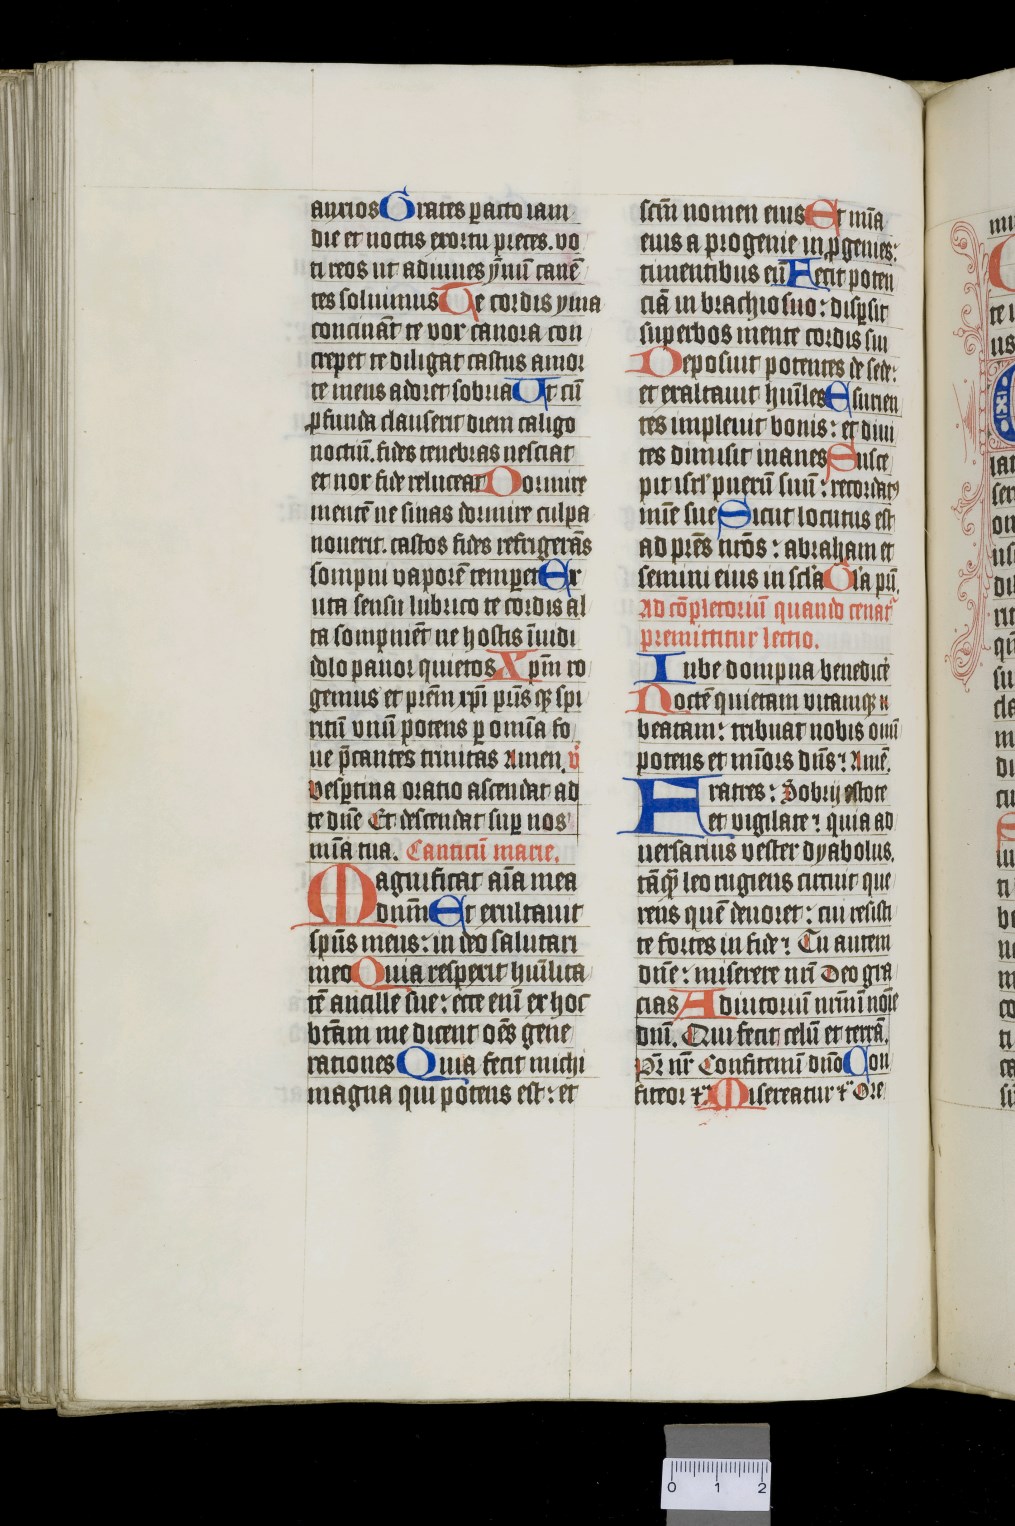 auxios Grates p̱acto iam
die et noctis exortu preces. vo
ti reos ut adiuues ỹmũ canẽ
tes soluimus Te cordis yma
concinãt te vox canora con
crepet te diligat castus amor
te mens adoret sobria Ut cũ
ꝓfunda clauserit diem caligo
noctiũ. fides tenebras nesciat
et nox fide reluceat Dormire
mentẽ ne sinas dormire culpa
nouerit. castos fides refrigerãs
sompni vaporẽ temp̱et Ex
uta sensu lubrico te cordis al
ta sompniẽt ne hostis ĩuidi
dolo pauor quietos Xpm̃ ro
gemus et prẽm xpĩ prĩs qꝫ spi
ritũ vnũ potens p̱ omĩa fo
ue p̃cantes trinitas Amen. v̉
Vesp̱tina oratio ascendat ad
te dñe Et descendat sup̱ nos
mĩa tua. Canticũ marie.
Magnificat aĩa mea
dnm̃ Et exultauit
spũs meus: in deo salutari
meo Quia respexit huĩlita
tẽ ancille sue: ecce enĩ ex hoc
btãm me dicent oẽs gene
rationes Quia fecit michi
magna qui potens est: et
scm̃ nomen eius Et mĩa
eius a progenie in ꝓgenies:
timentibus eũ Fecit poten
ciã in brachio suo: disp̱sit
superbos mente cordis sui
Deposuit potentes de sede:
et exaltauit huĩles Esurien
tes impleuit bonis: et diui
tes dimisit inanes Susce
pit isrl̕ puerũ suũ: recordatꝰ
mĩe sue Sicut locutus est
ad prẽs nrõs: abraham et
semini eius in scl̃a Gl̃a pr̃i.
Ad cõpletoriũ quando cenat᷑
premittitur lectio.
Iube dompna benedicẽ
Noctẽ quietam vitamqꝫ
beatam: tribuat nobis omĩ
potens et mĩors dñs: Amẽ.
Fratres: Sobrij estote
et vigilate: quia ad
uersarius vester dyabolus.
tãqᷓ leo rugiens circuit que
rens quẽ deuoret: cui resisti
te fortes in fide: Tu autem
dñe: miserere nr̃i Deo gra
cias Adiutoriũ nr̃m ĩ noĩe
dnĩ. Qui fecit celũ et terrã.
Pr̃ nr̃ Confitemĩ dño Con
fiteor ⁊c̃ Misereatur ⁊c̃ Ore